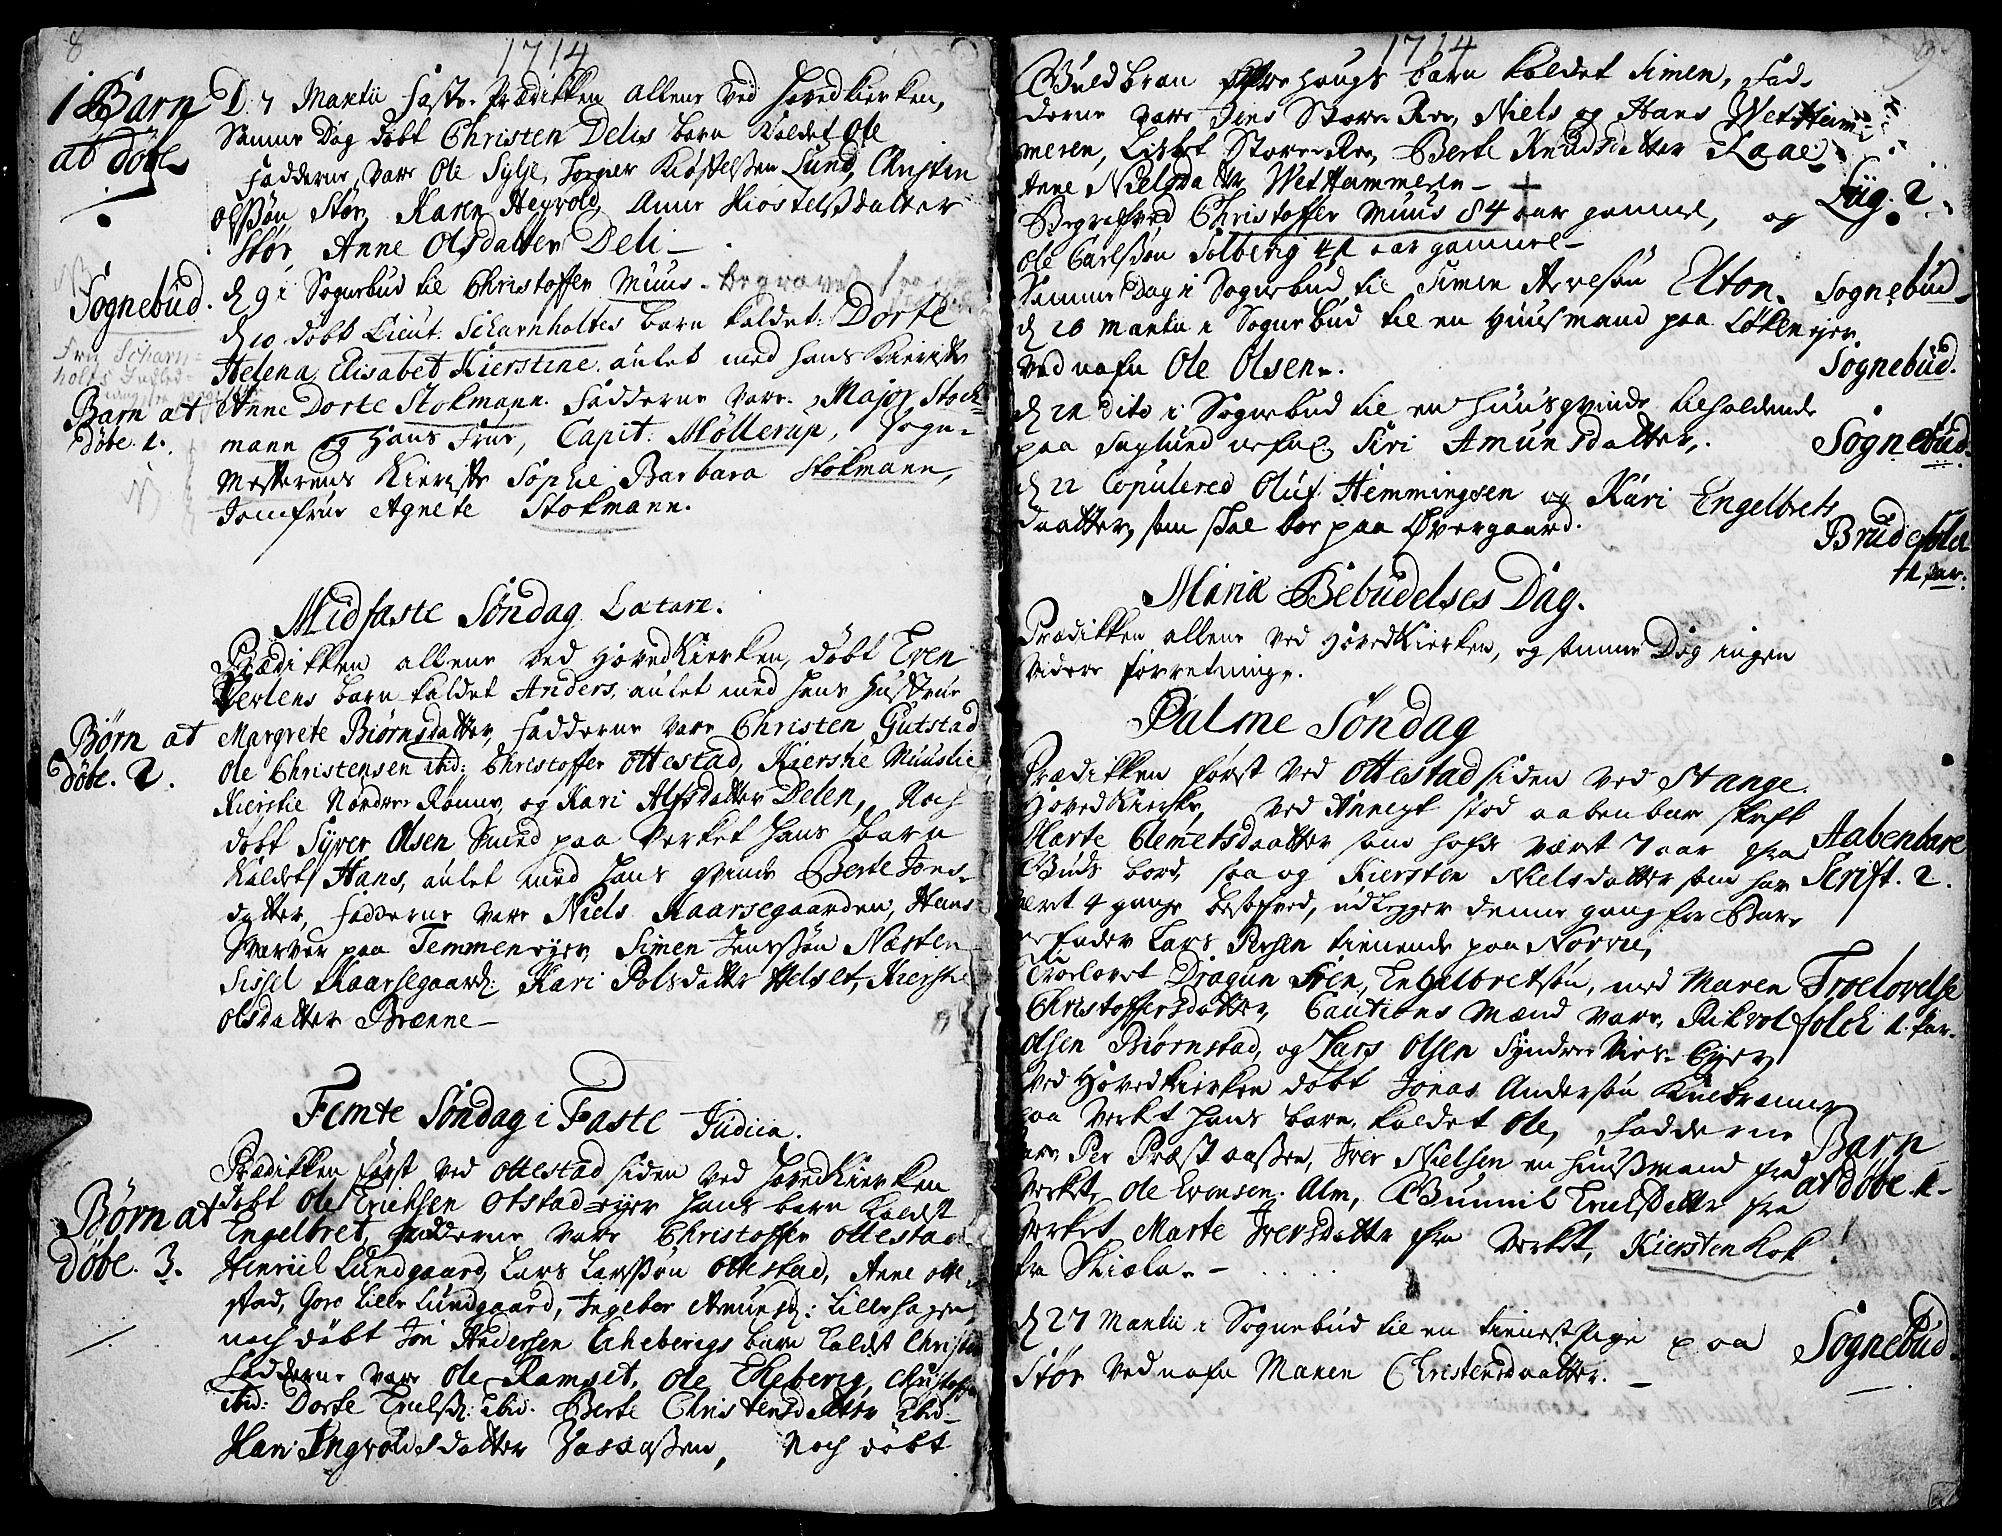 8
1714
1 Barn
at döbe
D: 7 Martii Faste-Prædikken allene ved Hovedkierken,
Samme Dag döbt Christen Delis barn kaldet Ole
Fadderne vare Ole Sylje, Lund, Christen
Olssön Stör, Karen Hegvold, Anne Kiöstelsdatter
Stör, Anne Olsdatter Deli —
Sognebud.
d 9 i Sognebud til Christoffer Muus.
d 10 döbt Lieut. Scharnholtes barn kaldet: Dorte
Helena Elisabet Kierstine, aulet med hans Kieriste
Barn at
döbe. 1.
Anne Dorte Stokmann. Fadderne vare. Major Stock-
mann og hans Frue, Capit: Möllerup, Fogn-
Mesterens Kieriste Sophie Barbara Stokmann,
Jomfrue Agnete Stokmann.
Midfaste Söndag Lætare.
Prædikken allene ved HovedKierken, döbt Even
Verlens barn kaldet Anders, aulet med hans Hustrue
Börn at
döbe. 2.
Margrete Biörnsdatter, Fadderne vare Christen Gutstad
Ole Christensen ibid: Christoffer Ottestad, Kierstie Muuslie
Kierstie Nordre Romnes, og Kari Alfsdatter Delen, Noch
döbt Syver Olsen Smed paa Verket hans barn
kaldet Hans, aulet med hans qvinde Berte Jons-
datter, Fadderne vare Niels Kaarsegaarden, Hans
Sverver paa Temmen ejer, Simen Jenssön Næsten
Sissel Kaarsegaard: Kari Polsdatter Helset, Kierstie
Olsdatter Brænne —
Femte Söndag i Faste Judica.
Prædikken först ved Ottestad siden ved HovedKierken
Börn at
döbe. 3.
döbt Ole Erichsen Otstad-ejer hans barn kaldet
Engelbret, Fadderne vare Christoffer Ottestad
Henriil Lundgaard, Lars Larssön Ottestad, Anne Otte-
stad, Goro Lille Lundgaard, Ingebor Amundsd: Lillehagen
noch döbt Jon Andersen Ekebergs barn kaldet Christo
Fadderne vare Ole Ramset, Ole Ekeberg, Christoffer
ibid: Dorte Erulsd: ibid. Berte Christensdatter ibid-
Kari Ingvoldsdatter Vasaassen, Noch döbt
1714
9
Guldbran haugs barn kaldet Simen, Fad-
derne vare Jens Store Ree, Niels og Hans WetHam-
meren, Lisbet Store Ree, Berte Knudsdatter Kaae
Anne Nielsdatter WetHammeren —
Liig. 2.
Begrafved Christoffer Muus 84 aar gammel, og
Ole Carlssön Solberg 41 aar gammel —
Samme Dag i Sognebud til Simen Arvesön Elton. Sognebud
d 20 Martii i Sognebud til en Huusmand paa Löken ejer
ved nafn Ole Olsen.
Sognebud.
d 21 dito i Sognebud til en huusqvinde tilholdende
paa Siri Amunsdatter.
Sognebud.
d 22 Copulered Oluf Hemmingsen og Kari Engelbrets
daatter, som skal boe paa Övergaard.
Brudefolck
1 par.
Mariæ Bebudelses Dag.
Prædikken allene ved HovedKierken, og samme Dag ingen
videre forretninge.
Palme Söndag
Prædikken först ved Ottestad siden ved Stange
HovedKierke, ved Annext stod aabenbar skrift
Marte Clemetsdaatter som hafde været 7 aar fra
Guds bord, saa og Kiersten Nielsdatter som har
Aabenbare
Scrift. 2.
været 4 gange besofved, udlegger denne gang for Bar-
ne Fader Lars Persen tienende paa Norrie,
Troelovet Dragun Sven Engelbretsön, med Maren
Troelovelse
folck 1. par.
Christoffersdatter, Cautions Mænd vare, Rikvol
Olsen Biörnstad, og Lars Olsen Syndre Ejer
ved HovedKierken döbt Jonas Andersön Kulbrenner
paa Verket hans barn, kaldet Ole, Fadderne
Barn
at döbe. 1.
vare Per Præstaassen, Iver Nielsen en huusmand fra
Verket, Ole Evensen Alm, Gunnil Erulsdatter fra
Verket, Marte Iversdatter fra Verket, Kiersten Kok
fra Skiæla. —
d 27 Martii i Sognebud til en tieneste pige paa
Stör ved nafn Maren Christensdaatter. —
Sognebud.